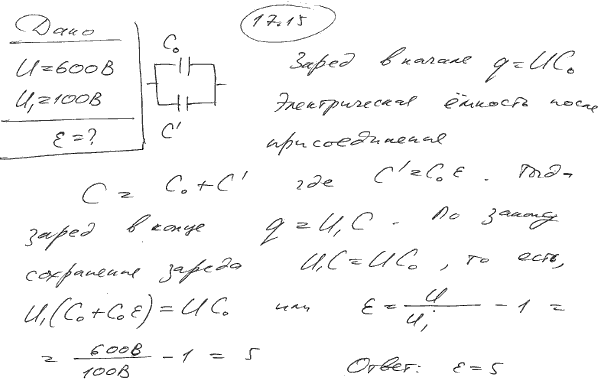 17.15
Дано
U=600В
U₁=100В
ε=?
C₀
C'
Заряд в начале q=UC₀
Электрическая ёмкость после
присоединения
C = C₀+C' где C'=C₀ε. Тогда
заряд в конце q=U₁C. По закону
сохранения заряда U₁C=UC₀, то есть,
U₁(C₀+C₀ε)=UC₀ или ε=U/U₁ - 1 =
= 600В/100В - 1 = 5
Ответ: ε=5